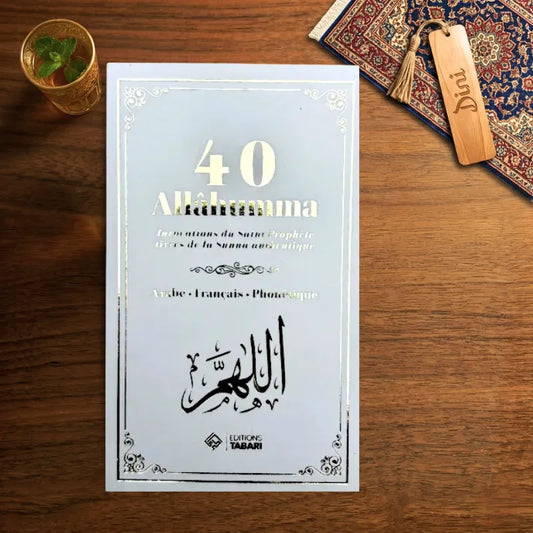 40
Allâhumma
Invocations du Saint Prophète
tirées de la Sunna authentique
Arabe • Français • Phonétique
اللهمَّ
EDITIONS
TABARI
Dini